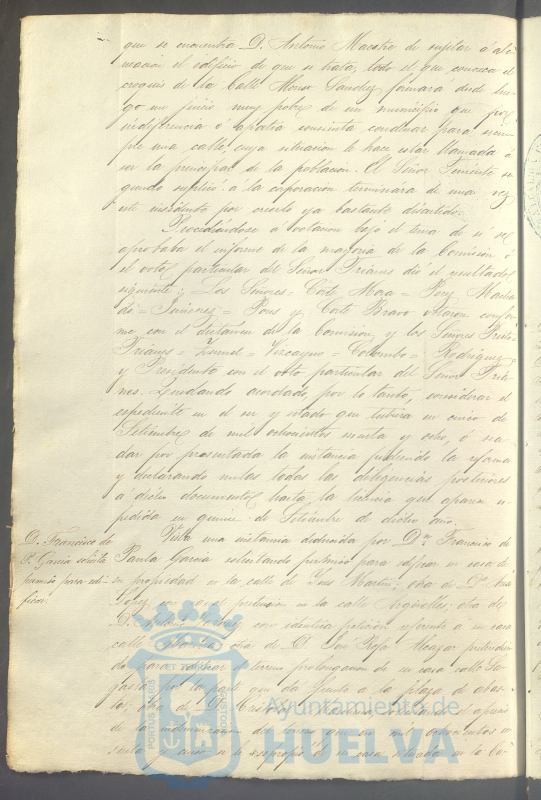 que se encuentra D. Antonio Maestre de sujetar á ali-
neacion el edificio de que se trata; todo el que conozca el
croquis de la Calle Alonso Sanchez formará desde lue-
go un juicio muy pobre de un municipio que por
indeferencia ó apatia consienta continuar para siem-
pre una calle cuya situacion le hace estar llamada á
ser la principal de la poblacion. El Señor Teniente se-
gundo suplicó á la corporacion terminara de una vez
este incidente por creerlo ya bastante discutido.
Procediéndose á votacion bajo el tema de si se
aprobaba el informe de la mayoria de la Comision ó
el voto particular del Señor Trianes dió el resultado
siguiente: Los Señores = Corte Mora = Perez Macha-
do = Jimenez = Pons y Corte Bravo votaron confor-
me con el dictamen de la Comision, y los Señores Prieto
Trianes = = Vizcayno = Colombo = Rodriguez
y Presidente con el voto particular del Señor Tria-
nes. Quedando acordado, por lo tanto, considerar el
espediente en el ser y estado que tubiera en cinco de
Setiembre de mil ochocientos setenta y ocho, ó sea
dar por presentada la instancia pidiendo la
y declarando nulas todas las diligencias posteriores
á dicho documento, hasta la licencia que aparece es-
pedida en quince de Setiembre de dicho año.
D. Francisco de
P. Garcia solicita
permiso para edi-
ficar.
Vista una instancia deducida por Dn. Francisco de
Paula Garcia solicitando permiso para edificar en casa de
su propiedad en la calle de San Martin; otra de Dn.
Lopez con igual pretension en la calle Argüelles; otra de
D. con identica peticion referente á su casa
calle otra de D. José Rofa Alcazar pretendien-
do para edificar terreno prolongacion de su casa calle Sa-
gasta por la parte que dá frente á la plaza de abas-
tos; otra de D. el aprecio
de la indemnizacion del terreno que en mil ochocientos se-
senta y cinco se le expropió á su casa situada en la Ca-
PORTUS MARIS ET TERRAE CUSTODIA
Ayuntamiento de
HUELVA